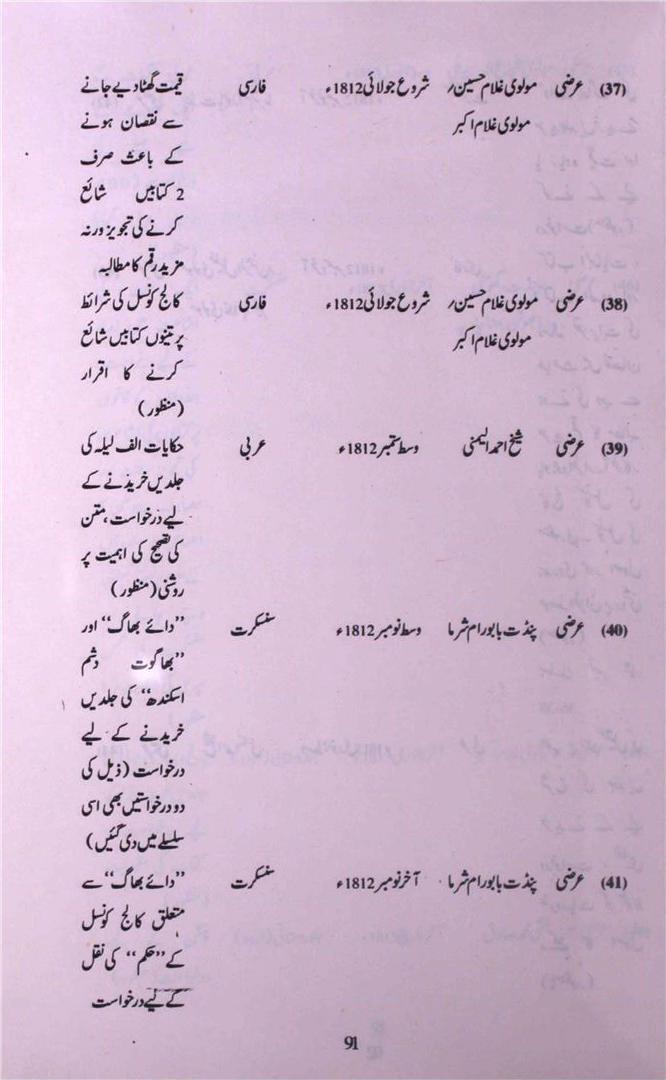 (37) عرضی مولوی غلام حسین ر شروع جولائی 1812ء فارسی قیمت گھٹا دیے جانے
مولوی غلام اکبر سے نقصان ہونے
کے باعث صرف
2 کتابیں شائع
کرنے کی تجویز ورنہ
مزید رقم کا مطالبہ
(38) عرضی مولوی غلام حسین ر شروع جولائی 1812ء فارسی کالج کونسل کی شرائط
مولوی غلام اکبر پر تینوں کتابیں شائع
کرنے کا اقرار
(منظور)
(39) عرضی شیخ احمد الیمنی وسط ستمبر 1812ء عربی حکایات الف لیلہ کی
جلدیں خریدنے کے
لیے درخواست، متن
کی تصحیح کی اہمیت پر
روشنی (منظور)
(40) عرضی پنڈت بابو رام شرما وسط نومبر 1812ء سنسکرت ”دائے بھاگ“ اور
”بھاگوت دشم
اسکندھ“ کی جلدیں
خریدنے کے لیے
درخواست (ذیل کی
دو درخواستیں بھی اسی
سلسلے میں دی گئیں)
(41) عرضی پنڈت بابو رام شرما آخر نومبر 1812ء سنسکرت ”دائے بھاگ“ سے
متعلق کالج کونسل
کے ”حکم“ کی نقل
کے لیے درخواست
91